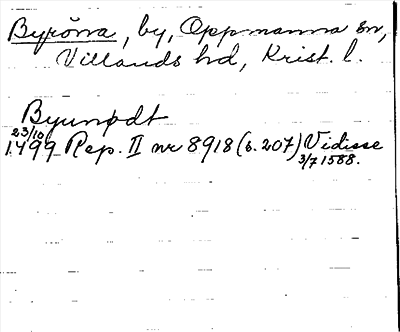 Byröna, by, Oppmanna sn,
Villands hd, Krist. l.
Byumødt
23/10 1499 Rep. II nr 8918 (s. 207) Vidisse
3/7 1588.